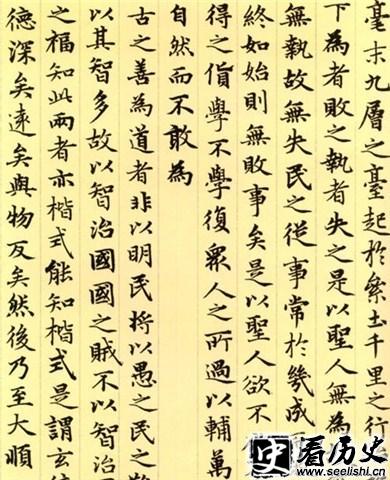 毫末九層之臺起於累土千里之行
下為者敗之執者失之是以聖人無為
無執故無失民之從事常於幾成
終如始則無敗事矣是以聖人欲不
得之貨學不學復眾人之所過以輔萬
自然而不敢為
古之善為道者非以明民將以愚之民之
以其智多故以智治國國之賊不以智治
之福知此兩者亦楷式能知楷式是謂玄
德深矣遠矣與物反矣然後乃至大順
史 看历史
www.seelishi.cn